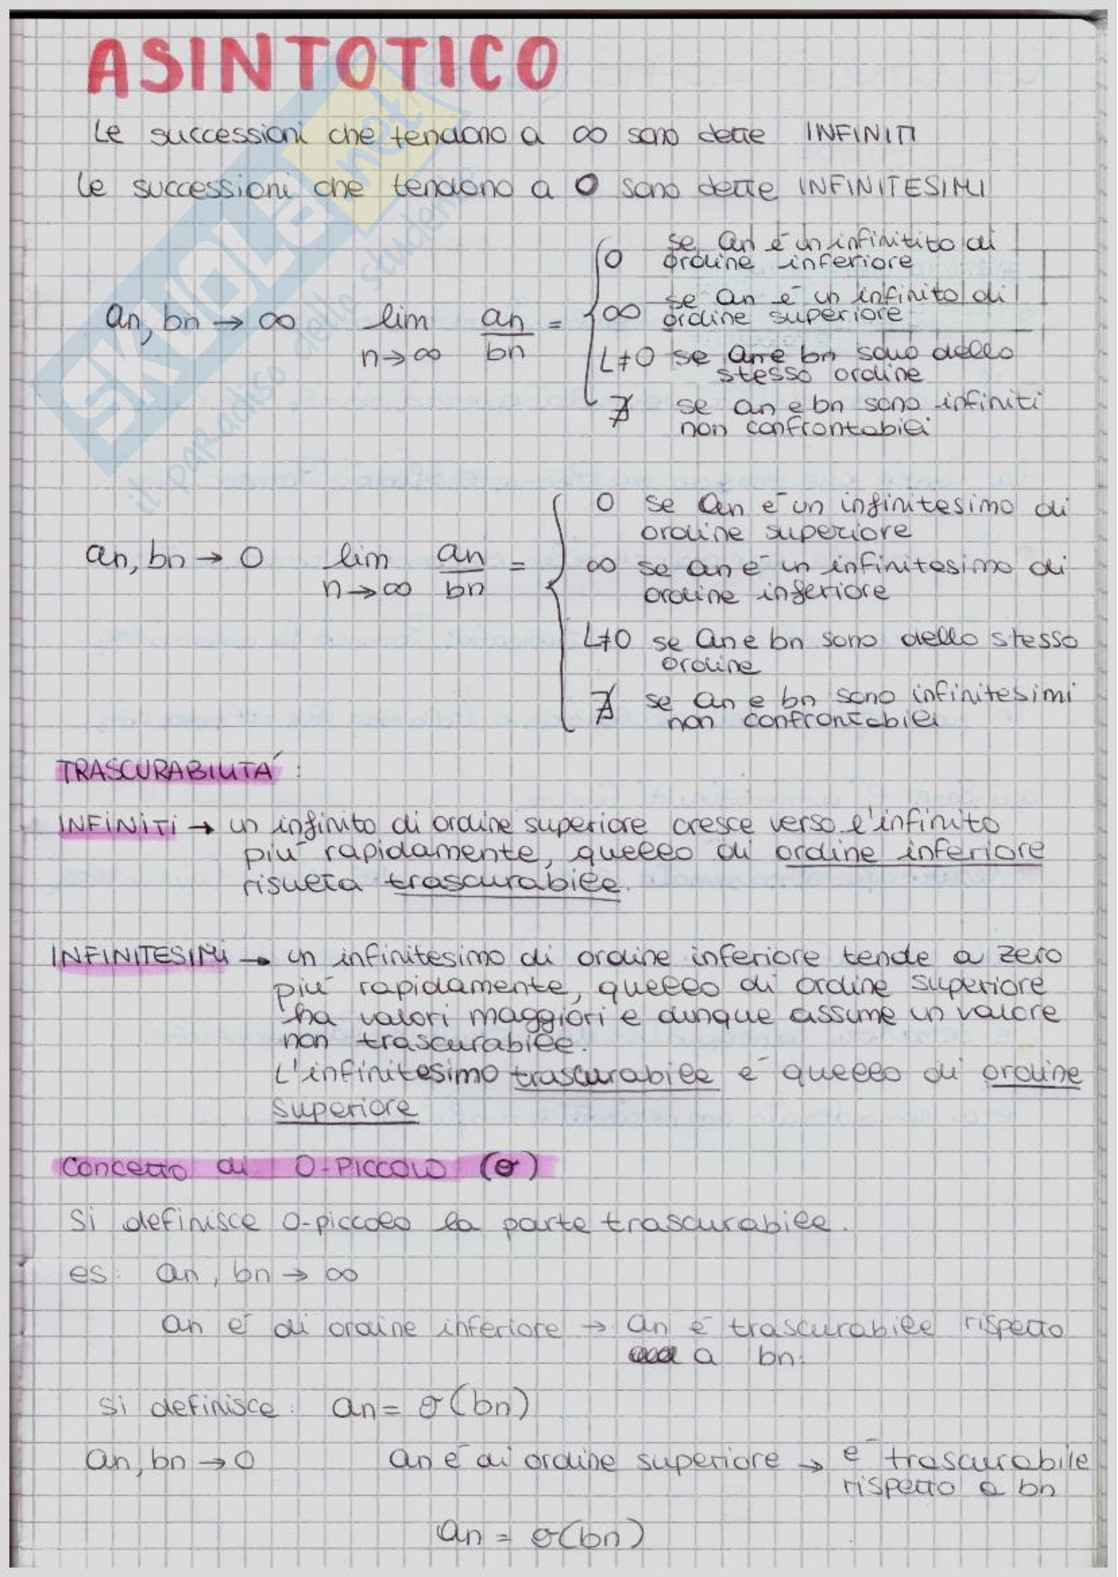 ASINTOTICO
Le successioni che tendono a ∞ sono dette INFINITI
Le successioni che tendono a 0 sono dette INFINITESIMI
an, bn → ∞ lim n→∞ an/bn =
0 se an é un infinitito di
ordine inferiore
∞ se an é un infinito di
ordine superiore
L≠0 se an e bn sono dello
stesso ordine
∄ se an e bn sono infiniti
non confrontabili
an, bn → 0 lim n→∞ an/bn =
0 se an é un infinitesimo di
ordine superiore
∞ se an é un infinitesimo di
ordine inferiore
L≠0 se an e bn sono dello stesso
ordine
∄ se an e bn sono infinitesimi
non confrontabili
TRASCURABILITÁ :
INFINITI → un infinito di ordine superiore cresce verso l'infinito
piú rapidamente, quello di ordine inferiore
risulta trascurabile.
INFINITESIMI → un infinitesimo di ordine inferiore tende a zero
piú rapidamente, quello di ordine superiore
ha valori maggiori e dunque assume un valore
non trascurabile.
L'infinitesimo trascurabile é quello di ordine
superiore
Concetto di O-PICCOLO (σ)
Si definisce o-piccolo la parte trascurabile.
es: an, bn → ∞
an é di ordine inferiore → an é trascurabile rispetto
a bn.
si definisce: an = σ(bn)
an, bn → 0 an é di ordine superiore → é trascurabile
rispetto a bn
an = σ(bn)
SKUOLA.net
il paradiso dello studente